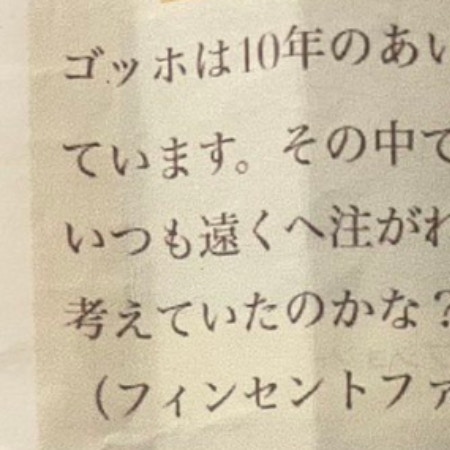 ゴッホは10年のあい
ています。その中で
いつも遠くへ注がれ
考えていたのかな？
（フィンセントファ